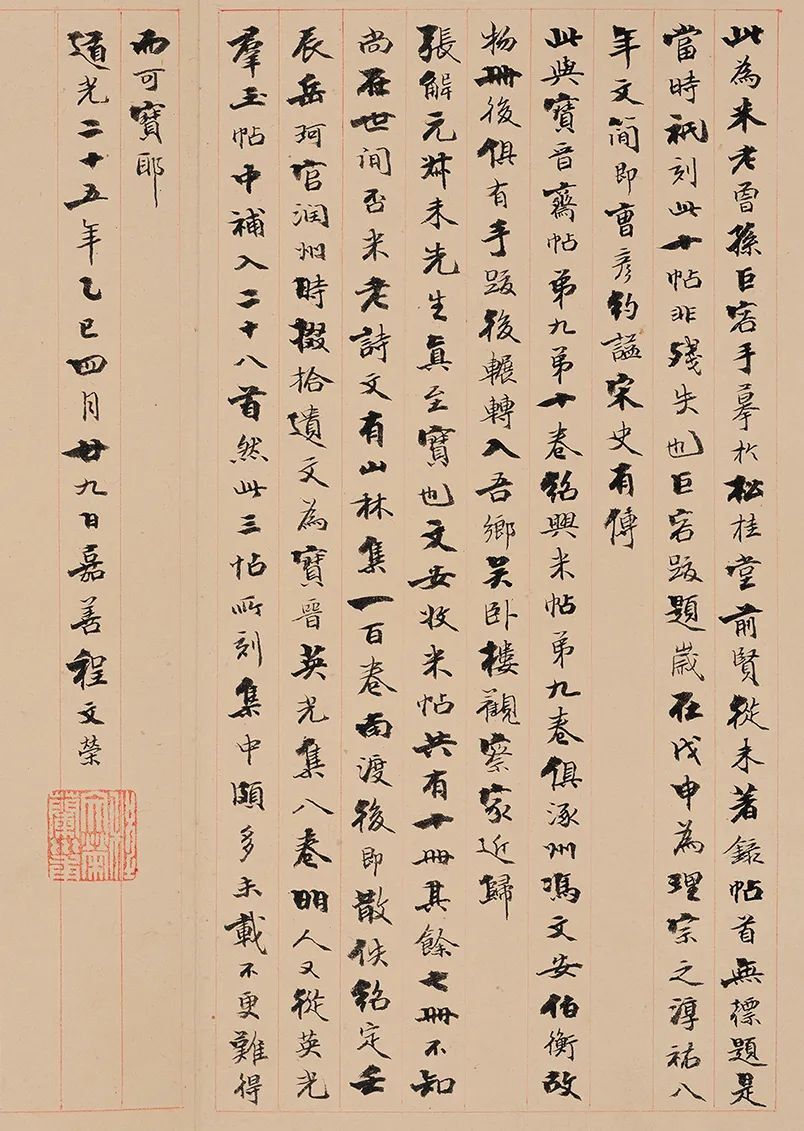 此為米老曾孫巨容手摹於松桂堂前賢從未著錄帖首無標題是
當時祇刻此十帖非殘失也巨容跋題歲在戊申為理宗之淳祐八
年文簡即曹彥約謚宋史有傳
此與寶晉齋帖弟九弟十卷紹興米帖弟九卷俱涿州馮文安伯衡故
物冊後俱有手跋後輾轉入吾鄉吳臥樓觀察家近歸
張解元叔未先生真至寶也文安收米帖共有十冊其餘七冊不知
尚在世間否米老詩文有山林集一百卷南渡後即散佚紹定壬
辰岳珂官潤州時掇拾遺文為寶晉英光集八卷明人又從英光
羣玉帖中補入二十八首然此三帖所刻集中頗多未載不更難得
而可寶耶
道光二十五年乙巳四月廿九日嘉善程文榮